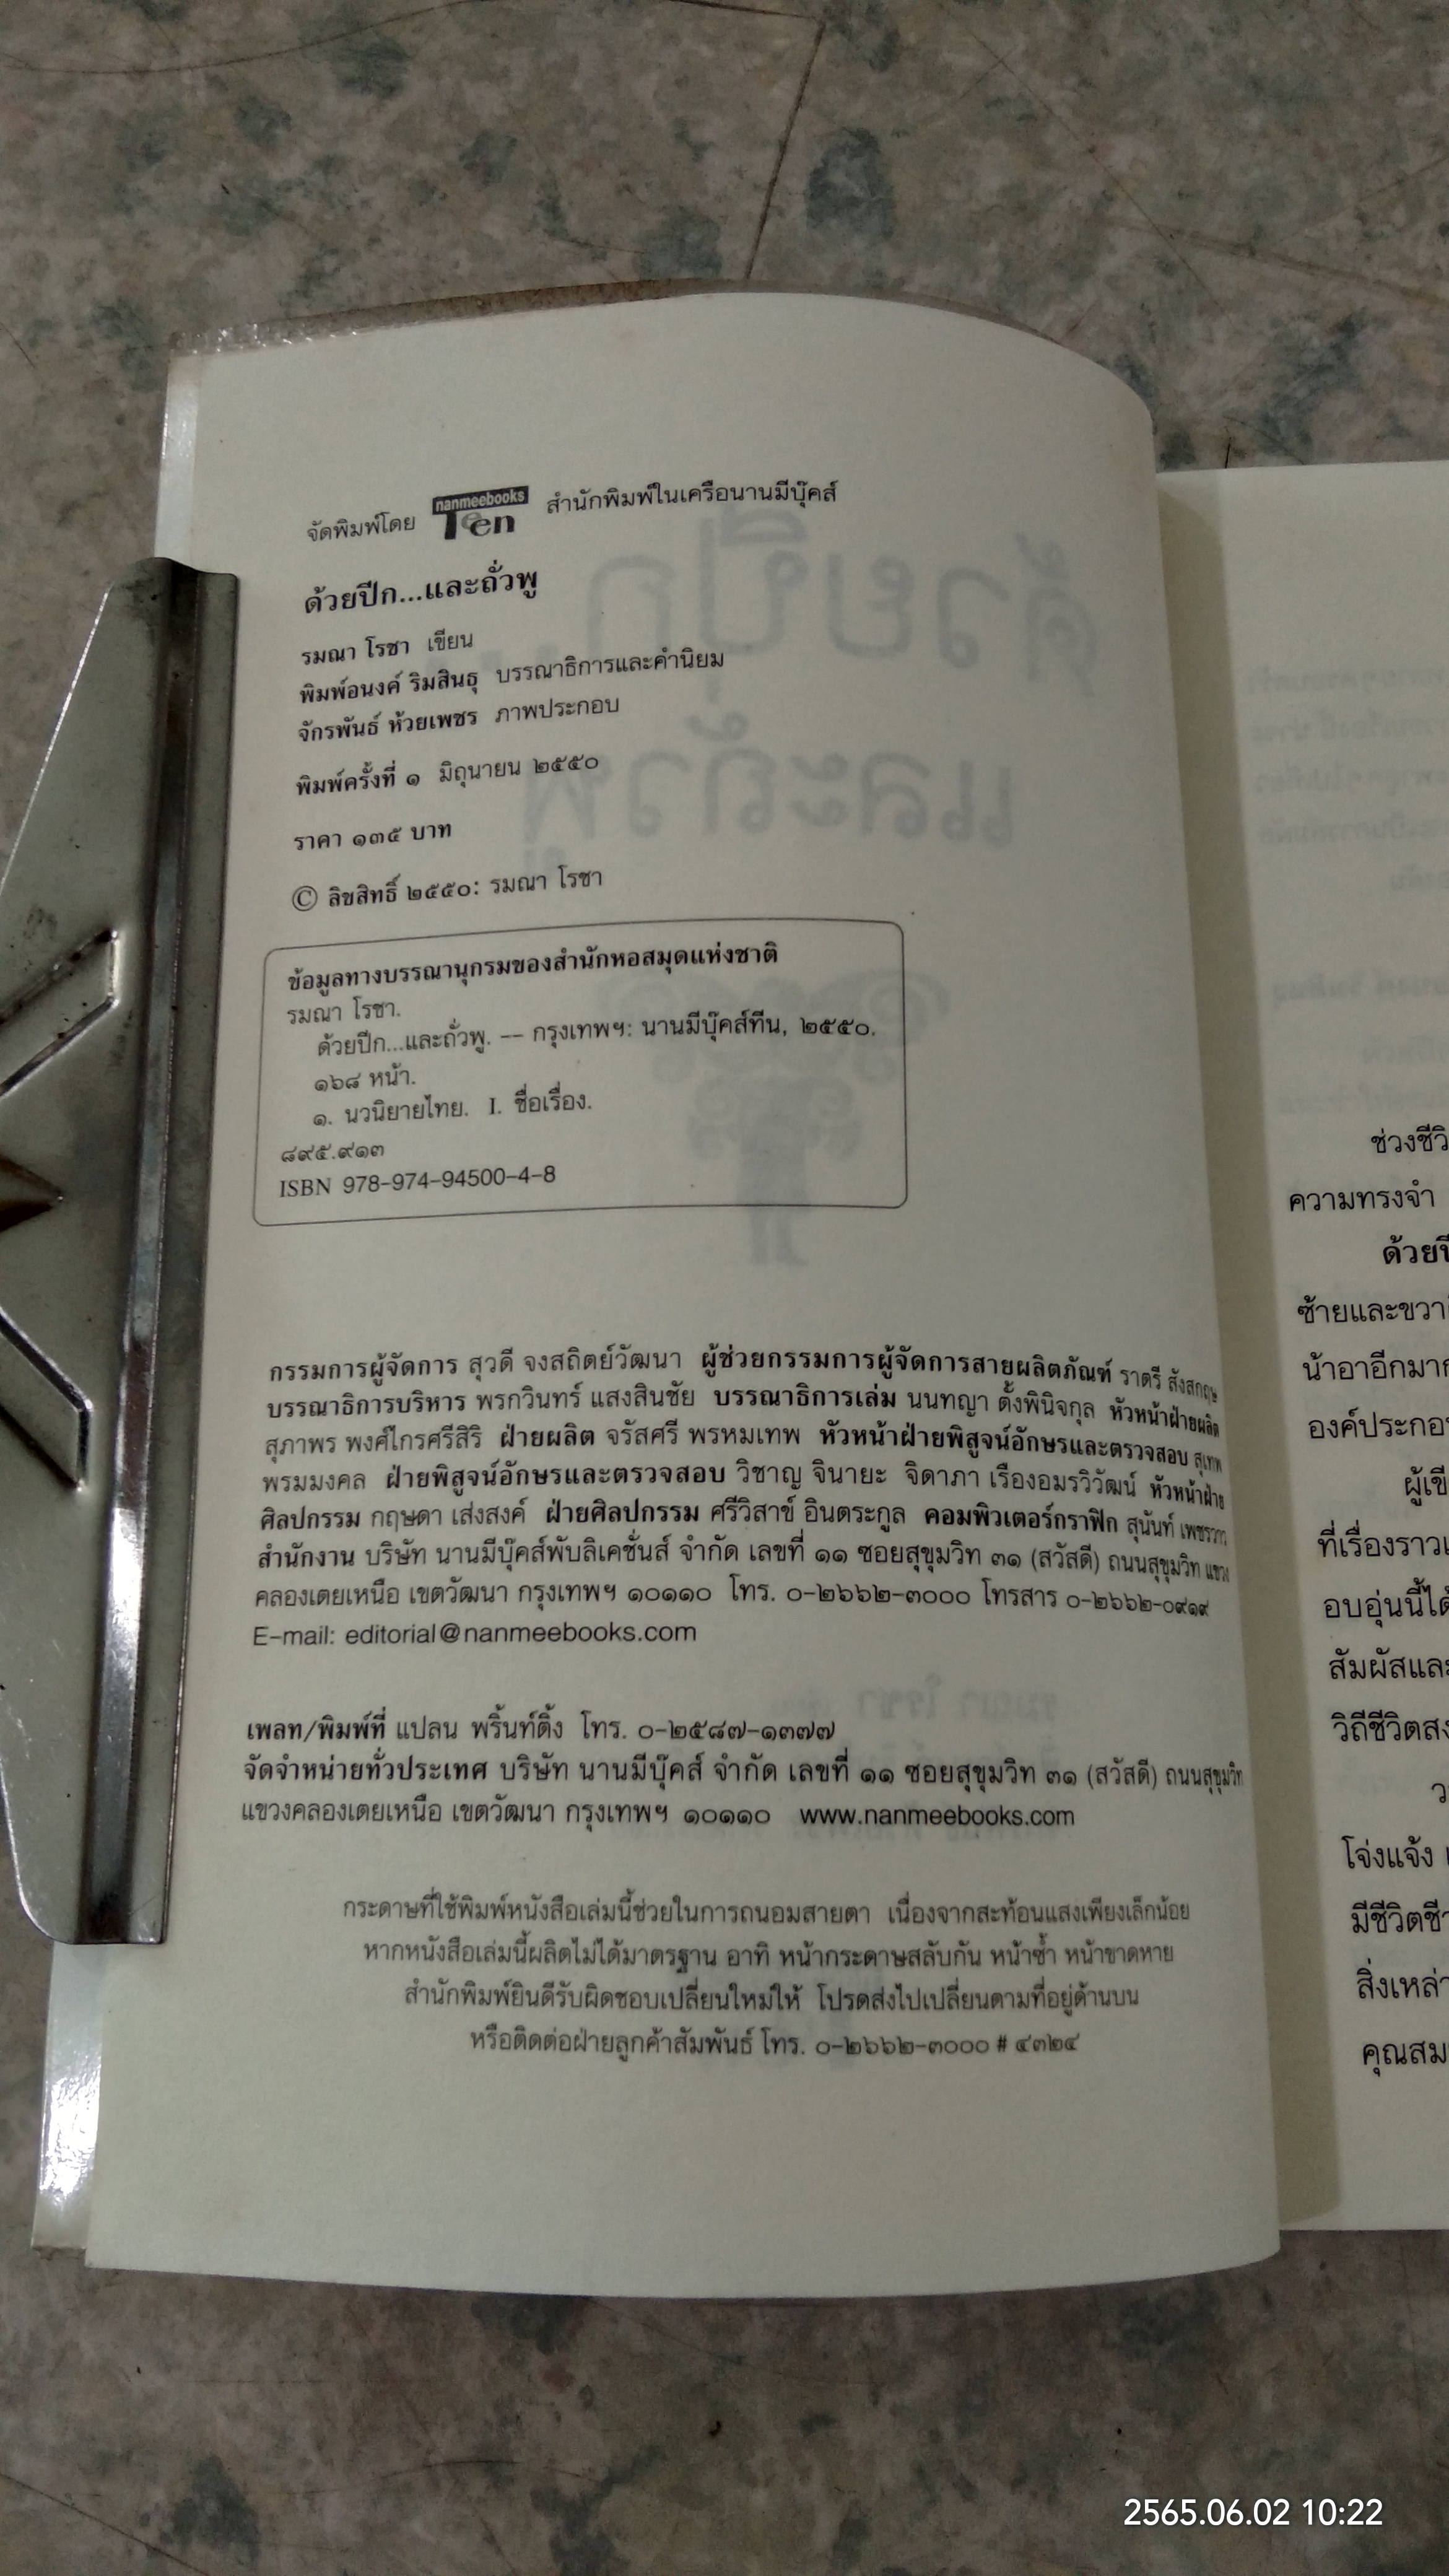 จัดพิมพ์โดย nanmeebooks Teen สำนักพิมพ์ในเครือนานมีบุ๊คส์
ด้วยปีก...และถั่วพู
รมณา โรชา เขียน
พิมพ์อนงค์ ริมสินธุ บรรณาธิการและคำนิยม
จักรพันธ์ ห้วยเพชร ภาพประกอบ
พิมพ์ครั้งที่ ๑ มิถุนายน ๒๕๕๐
ราคา ๑๓๕ บาท
© ลิขสิทธิ์ ๒๕๕๐: รมณา โรชา
ข้อมูลทางบรรณานุกรมของสำนักหอสมุดแห่งชาติ
รมณา โรชา.
ด้วยปีก...และถั่วพู. -- กรุงเทพฯ: นานมีบุ๊คส์ทีน, ๒๕๕๐.
๑๖๘ หน้า.
๑. นวนิยายไทย. I. ชื่อเรื่อง.
๘๙๕.๙๑๓
ISBN 978-974-94500-4-8
กรรมการผู้จัดการ สุวดี จงสถิตย์วัฒนา ผู้ช่วยกรรมการผู้จัดการสายผลิตภัณฑ์ ราตรี สังสกฤษ
บรรณาธิการบริหาร พรกวินทร์ แสงสินชัย บรรณาธิการเล่ม นนทญา ตั้งพินิจกุล หัวหน้าฝ่ายผลิต
สุภาพร พงศ์ไกรศรีสิริ ฝ่ายผลิต จรัสศรี พรหมเทพ หัวหน้าฝ่ายพิสูจน์อักษรและตรวจสอบ สุเทพ
พรมมงคล ฝ่ายพิสูจน์อักษรและตรวจสอบ วิชาญ จินายะ จิดาภา เรืองอมรวิวัฒน์ หัวหน้าฝ่าย
ศิลปกรรม กฤษดา เส่งสงค์ ฝ่ายศิลปกรรม ศรีวิสาข์ อินตระกูล คอมพิวเตอร์กราฟิก สุนันท์
สำนักงาน บริษัท นานมีบุ๊คส์พับลิเคชั่นส์ จำกัด เลขที่ ๑๑ ซอยสุขุมวิท ๓๑ (สวัสดี) ถนนสุขุมวิท แขวง
คลองเตยเหนือ เขตวัฒนา กรุงเทพฯ ๑๐๑๑๐ โทร. ๐-๒๖๖๒-๓๐๐๐ โทรสาร ๐-๒๖๖๒-๐๙๑๙
E-mail: editorial@nanmeebooks.com
เพลท/พิมพ์ที่ แปลน พริ้นท์ติ้ง โทร. ๐-๒๕๘๗-๑๓๗๗
จัดจำหน่ายทั่วประเทศ บริษัท นานมีบุ๊คส์ จำกัด เลขที่ ๑๑ ซอยสุขุมวิท ๓๑ (สวัสดี) ถนนสุขุมวิท
แขวงคลองเตยเหนือ เขตวัฒนา กรุงเทพฯ ๑๐๑๑๐ www.nanmeebooks.com
กระดาษที่ใช้พิมพ์หนังสือเล่มนี้ช่วยในการถนอมสายตา เนื่องจากสะท้อนแสงเพียงเล็กน้อย
หากหนังสือเล่มนี้ผลิตไม่ได้มาตรฐาน อาทิ หน้ากระดาษสลับกัน หน้าซ้ำ หน้าขาดหาย
สำนักพิมพ์ยินดีรับผิดชอบเปลี่ยนใหม่ให้ โปรดส่งไปเปลี่ยนตามที่อยู่ด้านบน
หรือติดต่อฝ่ายลูกค้าสัมพันธ์ โทร. ๐-๒๖๖๒-๓๐๐๐ # ๔๓๒๔
ช่วงชีวิ
ความทรงจำ
ด้วยปี
ซ้ายและขวา
น้าอาอีกมาก
องค์ประกอบ
ผู้เขี
ที่เรื่องราวเ
อบอุ่นนี้ได้
สัมผัสและ
วิถีชีวิตสง
ว
โจ่งแจ้ง เ
มีชีวิตชี
สิ่งเหล่า
คุณสม
2565.06.02 10:22